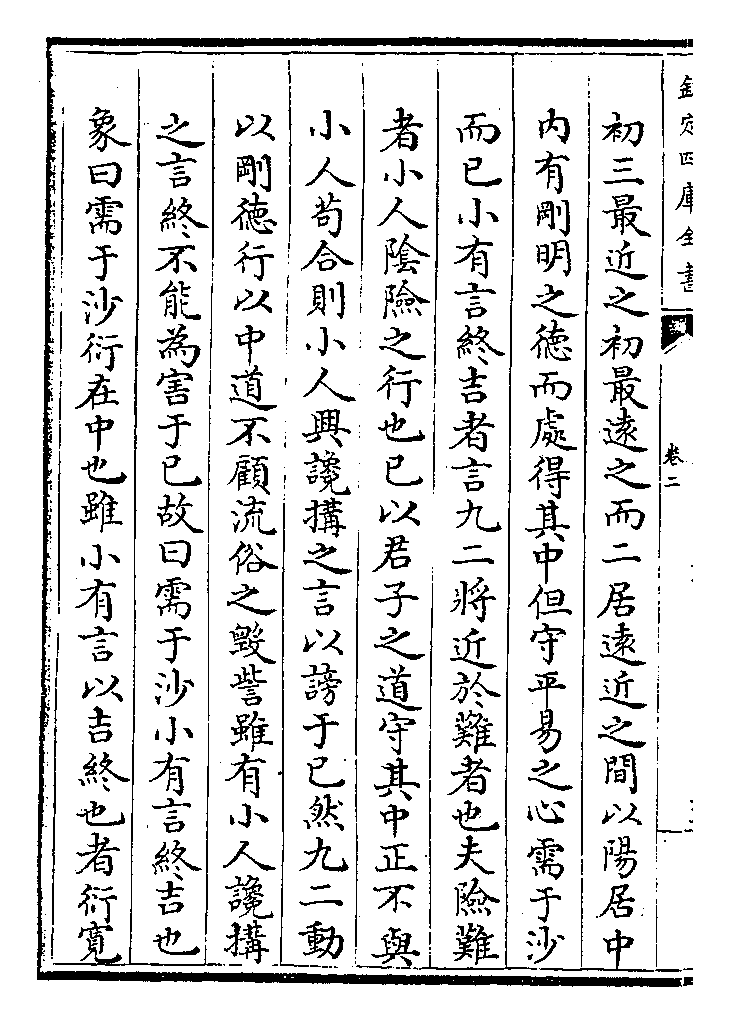 欽定四庫全書
卷二
初三最近之初最遠之而二居遠近之間以陽居中
内有剛明之德而處得其中但守平易之心需于沙
而已小有言終吉者言九二將近於難者也夫險難
者小人陰險之行也已以君子之道守其中正不與
小人苟合則小人興讒搆之言以謗于已然九二動
以剛德行以中道不顧流俗之毀訾雖有小人讒搆
之言終不能為害于已故曰需于沙小有言終吉也
象曰需于沙衍在中也雖小有言以吉終也者衍寛